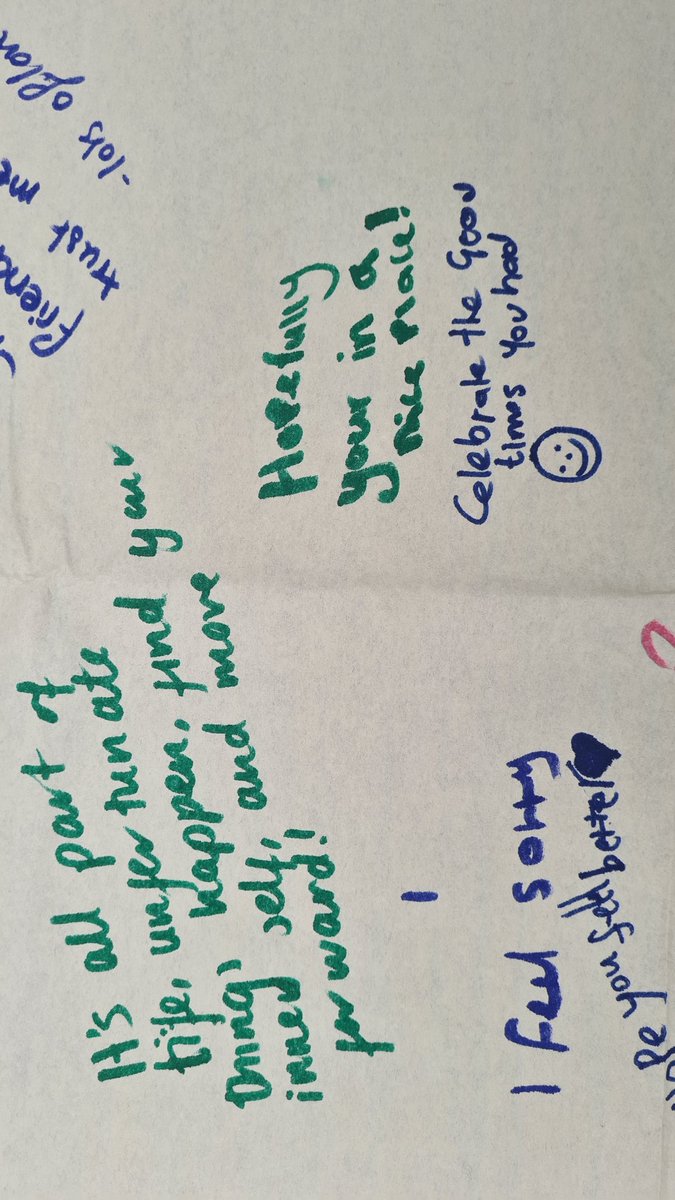 It's all part of
life, unfor tunate
things happen, find your
inner self, and move
for ward.
Hopefully
your in a
nice place!
Celebrate the Good
times you had
I feel sorry
you fell better
friend
trust me
-lots of